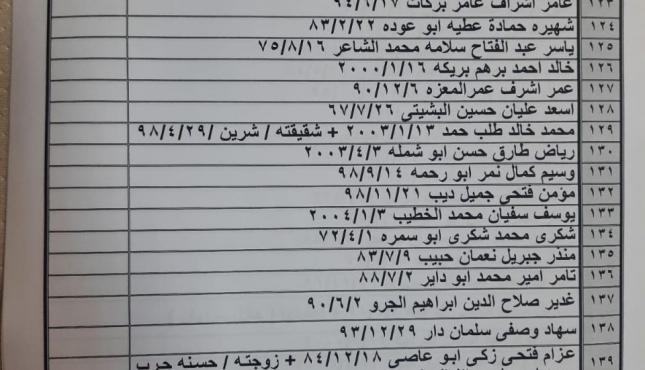 ١٢٣ عامر اشراف عامر بركات ٩٤/٦/١٧
١٢٤ شهيره حمادة عطيه ابو عوده ٨٣/٢/٢٢
١٢٥ ياسر عبد الفتاح سلامه محمد الشاعر ٧٥/٨/١٦
١٢٦ خالد احمد برهم بريكه ٢٠٠٠/١/١٦
١٢٧ عمر اشرف عمرالمعزه ٩٠/١٢/٦
١٢٨ اسعد عليان حسين البشيتي ٦٧/٧/٢٦
١٢٩ محمد خالد طلب حمد ٢٠٠٣/١/١٣ + شقيقته / شرين /٩٨/٤/٢٩
١٣٠ رياض طارق حسن ابو شمله ٢٠٠٣/٤/٣
١٣١ وسيم كمال نمر ابو رحمه ٩٨/٩/١٤
١٣٢ مؤمن فتحى جميل ديب ٩٨/١١/٢١
١٣٣ يوسف سفيان محمد الخطيب ٢٠٠٤/١/٣
١٣٤ شكرى محمد شكرى ابو سمره ٧٢/٤/١
١٣٥ منذر جبريل نعمان حبيب ٨٣/٧/٩
١٣٦ تامر امير محمد ابو داير ٨٨/٧/٢
١٣٧ غدير صلاح الدين ابراهيم الجرو ٩٠/٦/٢
١٣٨ سهاد وصفى سلمان دار ٩٣/١٢/٢٩
١٣٩ عزام فتحى زكى ابو عاصى ٨٤/١٢/١٨ + زوجته / حسنه حرب